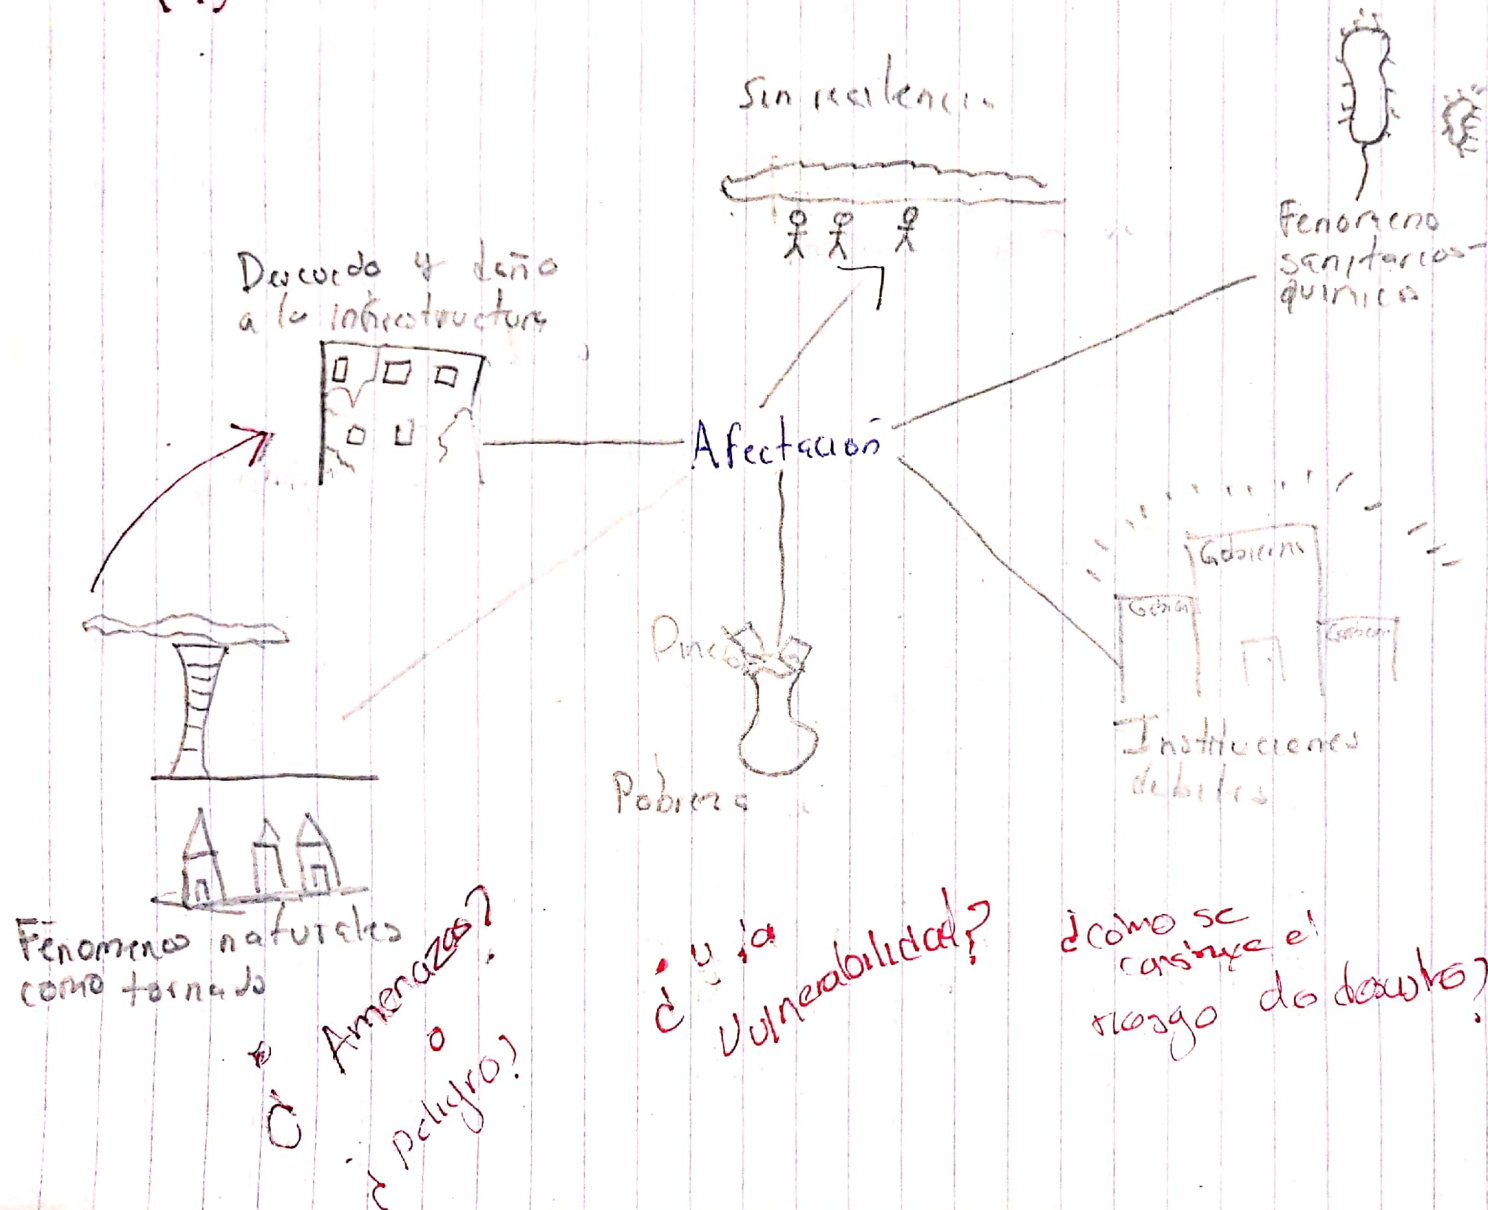 Sin resilencia
Fenomeno
sanitarios-
quimico
Descuido y daño
a la infraestructura
Afectación
Gobierno
Gobier
Gobier
Dinero
Pobreza
Instituciones
debiles
Fenomenos naturales
como tornado
¿ Amenazas?
o
¿ Peligro?
¿ y la
Vulnerabilidad?
¿como se
construye el
riesgo de desastre?